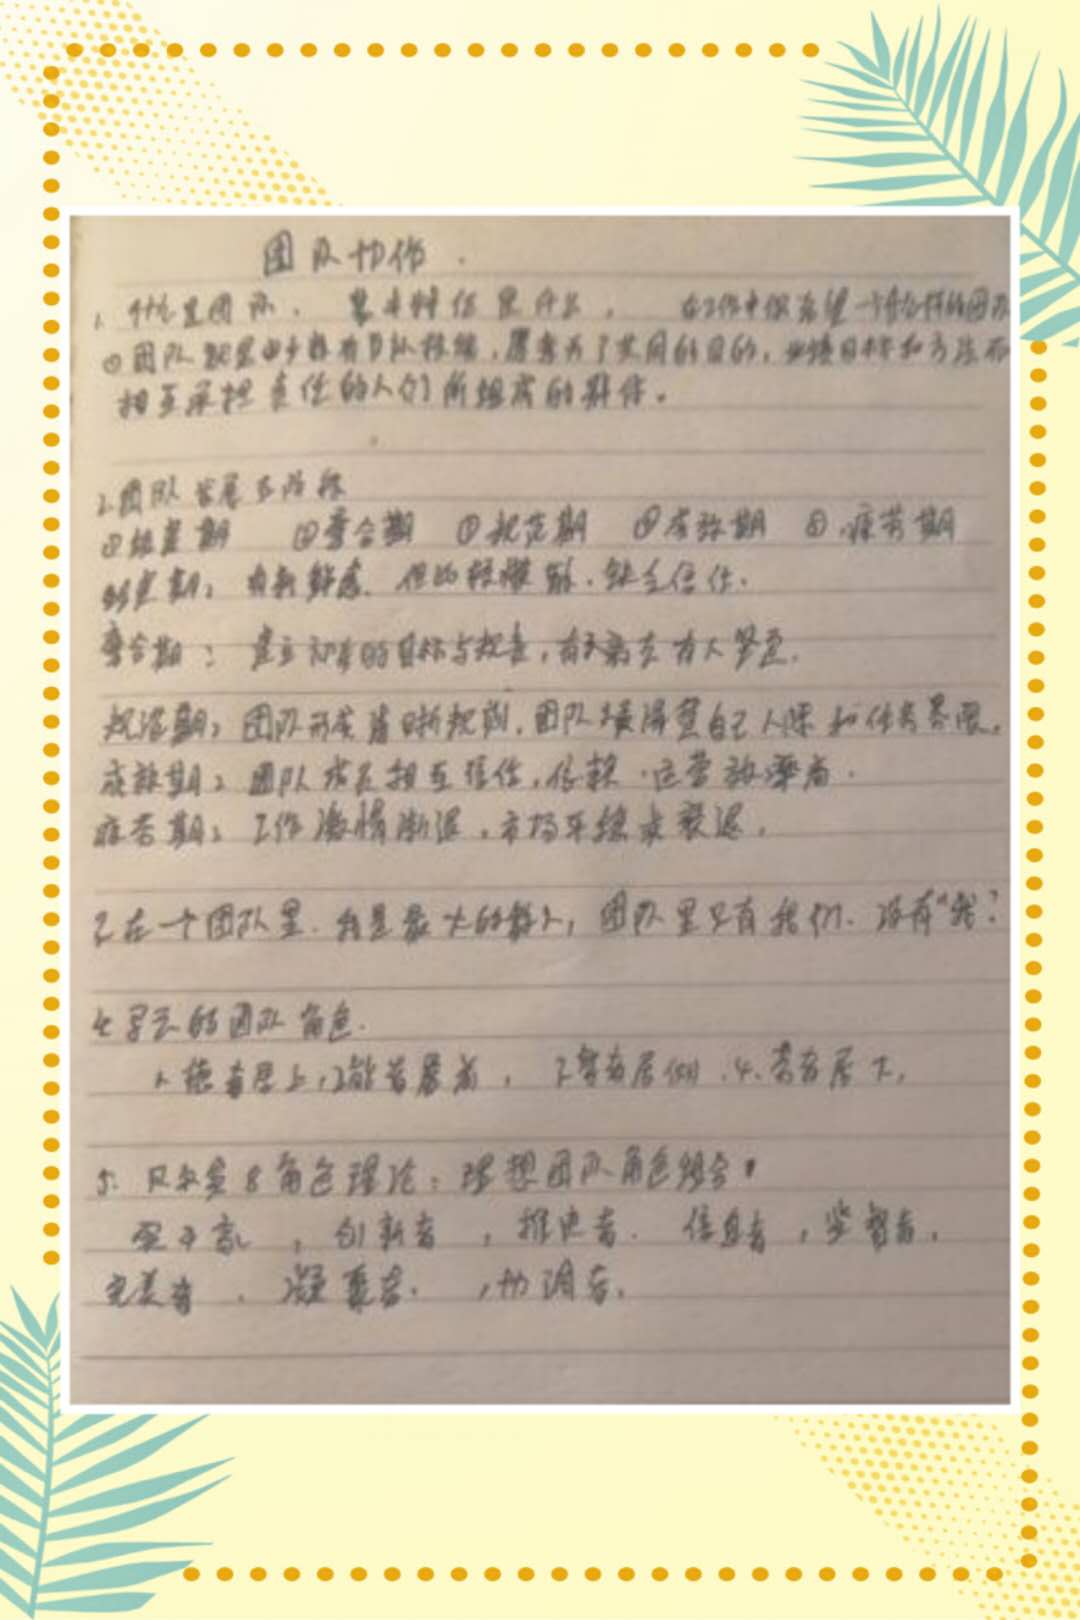 团队协作
1. 什么是团队、基本特征是什么, 在工作中你希望一个什么样的团队
①团队就是由少数有互补技能,愿意为了共同的目的,业绩目标和方法而
相互承担责任的人们所组成的群体。
2.团队发展五阶段
①组建期 ②磨合期 ③规范期 ④成效期 ⑤.疲劳期
组建期: 有新鲜感、但
缺乏信任.
磨合期: 建立初步的目标与规, 有人离去有人
规范期: 团队形成清晰规则,团队 自己人际和任务界限.
成效期: 团队成员相互信任,依赖.运营效率高.
疲劳期: 工作激情渐退,市场、业绩衰退.
3.在一个团队里.我是最大的敌人,团队里只有我们.没有"我"
4. 的团队角色.
1.德者居上,2.能者居前, 3.智者居侧.4.劳者居下.
5. 贝尔宾8角色理论: 理想团队角色组合
实干家, 创新者, 推进者. 信息者,监督者.
完美者. 凝聚者. ,协调者.